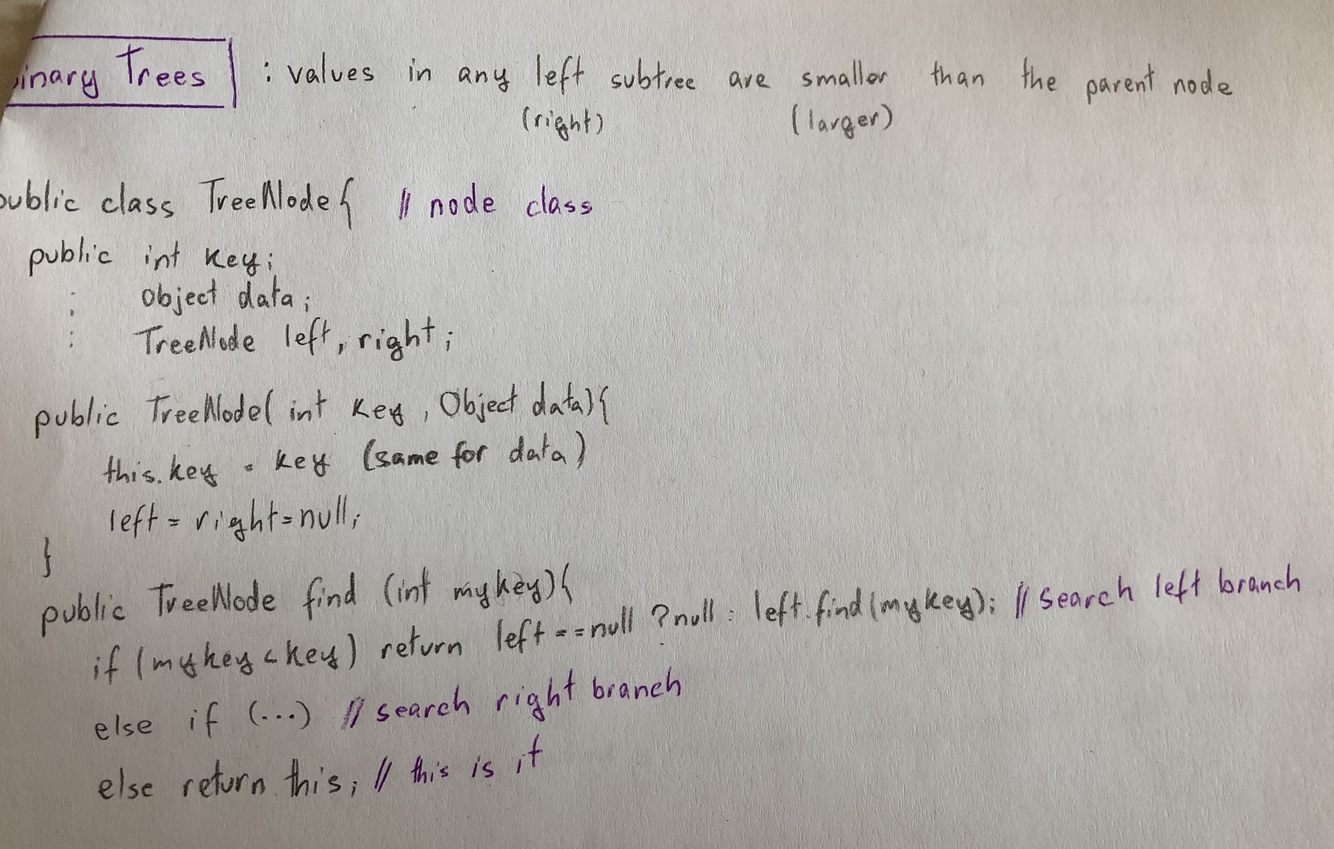 inary Trees : values in any left subtree are smaller than the parent node
(right) (larger)
public class TreeNode{ // node class
public int key;
: Object data;
: TreeNode left, right;
public TreeNode( int key, Object data){
this.key = key (same for data)
left = right=null;
}
public TreeNode find (int mykey){
if (mykey < key) return left == null ? null : left.find(mykey); // search left branch
else if (...) // search right branch
else return this; // this is it